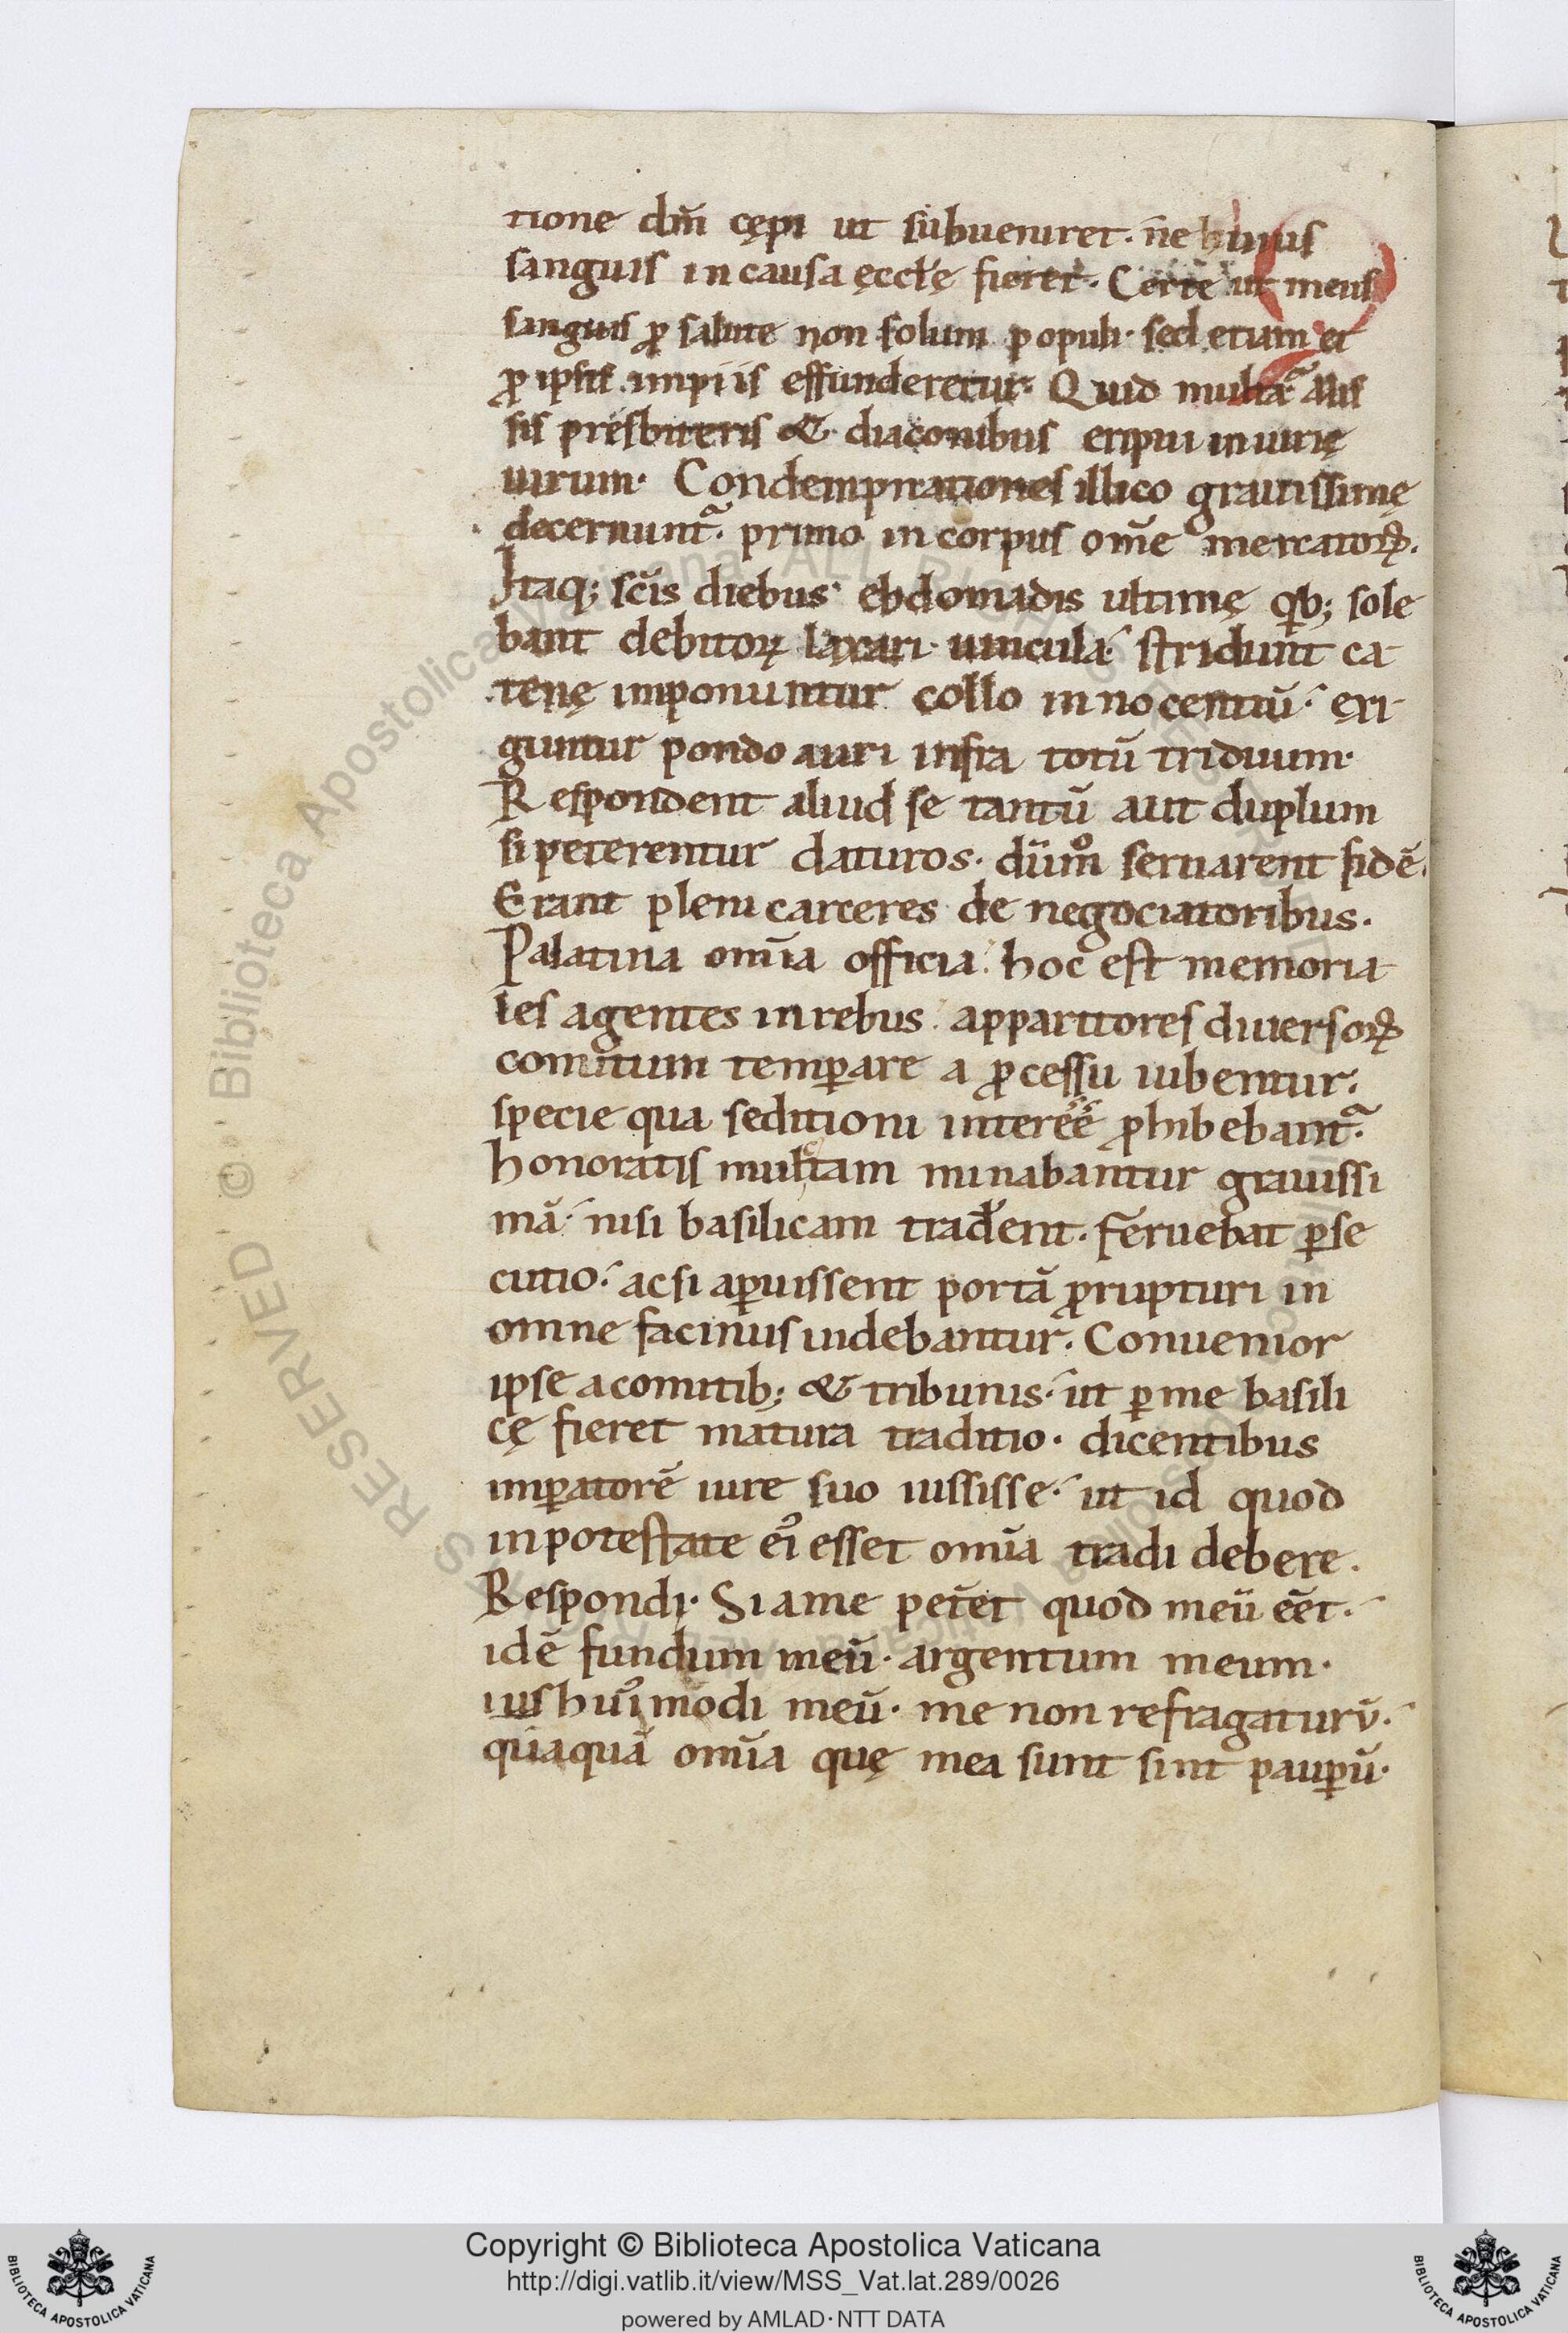 tione dm̄ cępi ut subueniret. ne huius
sanguis in causa ęccłę fieret. Certe ut meus
sanguis ꝓ salute non solum populi. sed etiam et
ꝓ ipsis impiis effunderetur. Quid multa. Mis
sis presbiteris & diaconibus eripui iniurię
uirum. Condempnationes illico grauissimę
decernunt᷑. primo in corpus om̄e mercatoꝝ.
Itaq; sc̄is diebus ebdomadis ultimę qͥb; sole
bant debitoꝝ laxari uincula. stridunt ca
tenę imponuntur collo innocentiū. exi
guntur pondo auri infra totū triduum.
Respondent aliud se tantū aut duplum
si peterentur daturos. dūmͦ seruarent fidē.
Erant pleni carceres de negociatoribus.
Palatina om̄ia officia. hoc est memoria
les agentes in rebus. apparitores diuersoꝝ
comitum temꝑare a ꝓcessu iubentur.
specie qua seditioni intereē ꝓhibebant᷑.
honoratis multam minabantur grauissi
mā. nisi basilicam trad̄ent. Feruebat ꝑse
cutio. ac si aꝑuissent portā ꝓrupturi in
omne facinus uidebantur. Conuenior
ipse a comitib; & tribunis. ut ꝑ me basili
cę fieret matura traditio. dicentibus
imꝑatorē iure suo iussisse. ut id quod
in potestate ei᷒ esset om̄ia tradi debere.
Respondi. Si a me pet̄et quod meū eēt.
idē fundum meū. argentum meum.
ius hui᷒modi meū. me non refragaturū.
quāquā om̄ia quę mea sunt sint pauꝑū.
Copyright © Biblioteca Apostolica Vaticana
http://digi.vatlib.it/view/MSS_Vat.lat.289/0026
powered by AMLAD·NTT DATA